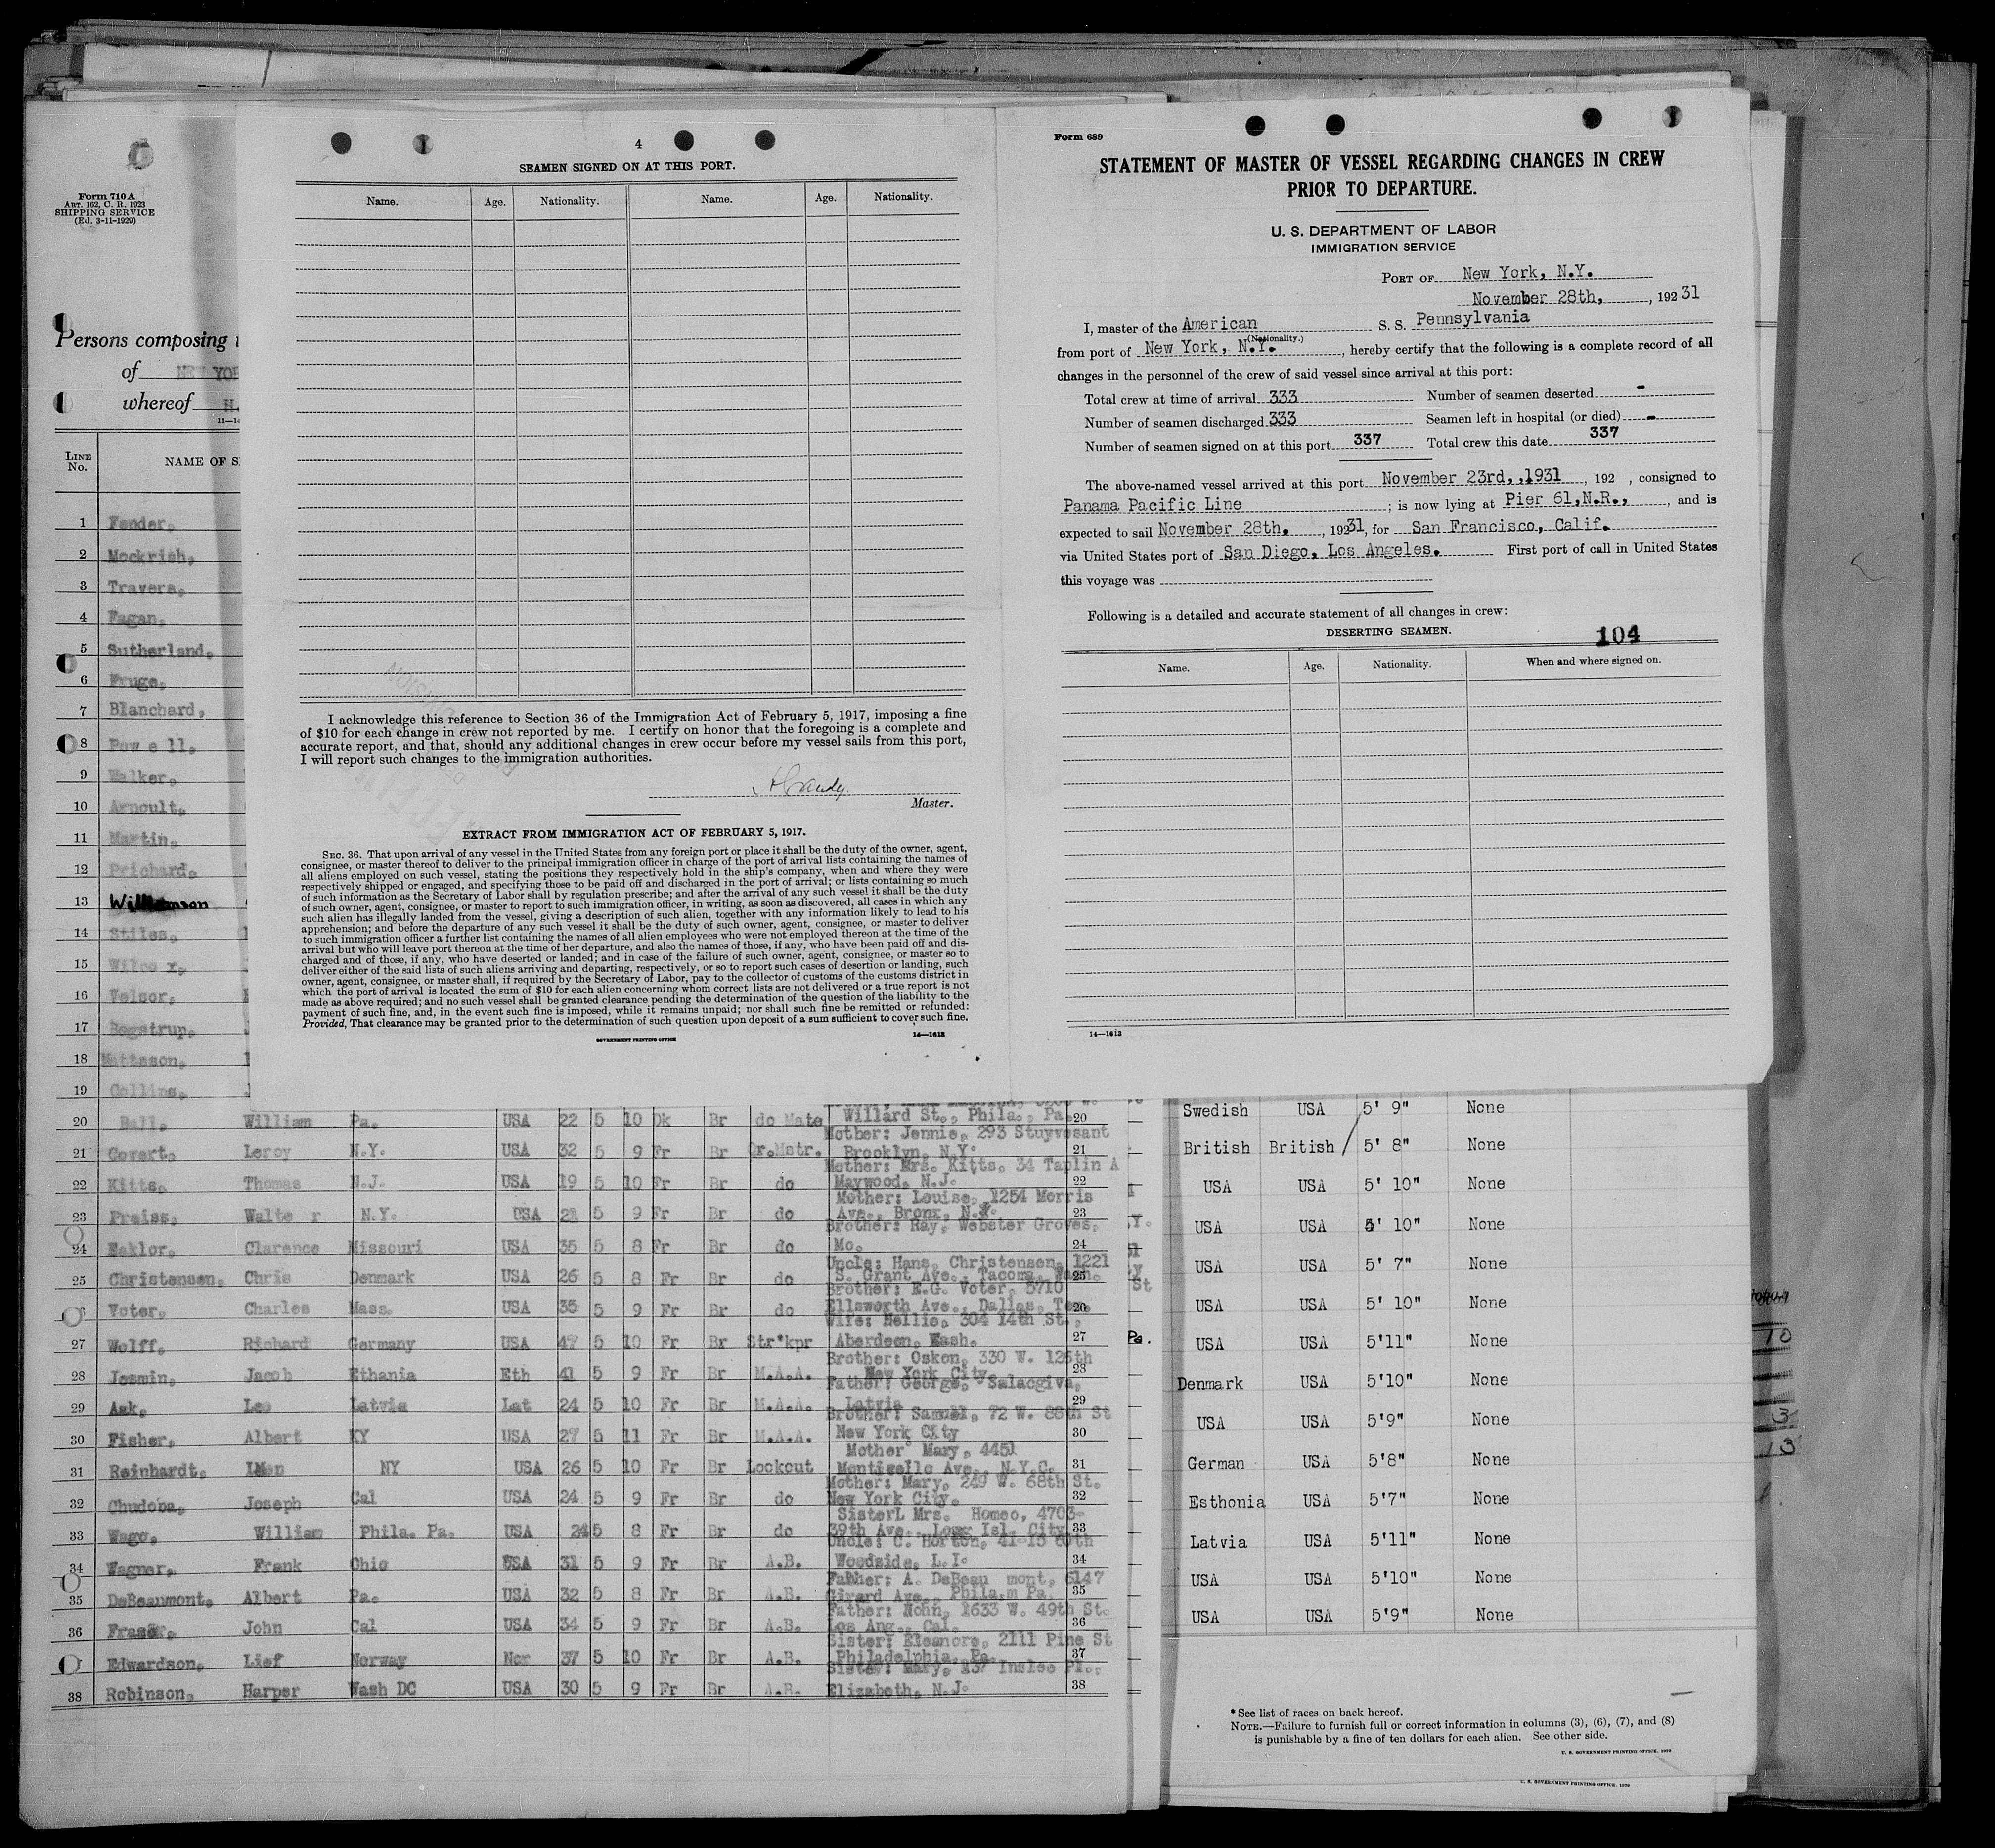 Form 710 A
ART. 162, C. R. 1923
SHIPPING SERVICE
(Ed. 3-11-1929)
Persons composing
of NEW YOR
whereof H.
11—1
LINE No.
NAME OF S
1 Fender,
2 Mockrish,
3 Travers,
4 Fagan,
5 Sutherland,
6 Fruge,
7 Blanchard,
8 Pow e ll,
9 Walker,
10 Arnoult,
11 Martin,
12 Prichard,
13 Williamson
14 Stiles,
15 Wilco x,
16 Velsor,
17 Bogstrup,
18 Mattsson,
19 Collins,
4
SEAMEN SIGNED ON AT THIS PORT.
Name. Age. Nationality. Name. Age. Nationality.
I acknowledge this reference to Section 36 of the Immigration Act of February 5, 1917, imposing a fine
of $10 for each change in crew not reported by me. I certify on honor that the foregoing is a complete and
accurate report, and that, should any additional changes in crew occur before my vessel sails from this port,
I will report such changes to the immigration authorities.
Master.
EXTRACT FROM IMMIGRATION ACT OF FEBRUARY 5, 1917.
SEC. 36. That upon arrival of any vessel in the United States from any foreign port or place it shall be the duty of the owner, agent,
consignee, or master thereof to deliver to the principal immigration officer in charge of the port of arrival lists containing the names of
all aliens employed on such vessel, stating the positions they respectively hold in the ship's company, when and where they were
respectively shipped or engaged, and specifying those to be paid off and discharged in the port of arrival; or lists containing so much
of such information as the Secretary of Labor shall by regulation prescribe; and after the arrival of any such vessel it shall be the duty
of such owner, agent, consignee, or master to report to such immigration officer, in writing, as soon as discovered, all cases in which any
such alien has illegally landed from the vessel, giving a description of such alien, together with any information likely to lead to his
apprehension; and before the departure of any such vessel it shall be the duty of such owner, agent, consignee, or master to deliver
to such immigration officer a further list containing the names of all alien employees who were not employed thereon at the time of the
arrival but who will leave port thereon at the time of her departure, and also the names of those, if any, who have been paid off and dis-
charged and of those, if any, who have deserted or landed; and in case of the failure of such owner, agent, consignee, or master so to
deliver either of the said lists of such aliens arriving and departing, respectively, or so to report such cases of desertion or landing, such
owner, agent, consignee, or master shall, if required by the Secretary of Labor, pay to the collector of customs of the customs district in
which the port of arrival is located the sum of $10 for each alien concerning whom correct lists are not delivered or a true report is not
made as above required; and no such vessel shall be granted clearance pending the determination of the question of the liability to the
payment of such fine, and, in the event such fine is imposed, while it remains unpaid; nor shall such fine be remitted or refunded:
Provided, That clearance may be granted prior to the determination of such question upon deposit of a sum sufficient to cover such fine.
GOVERNMENT PRINTING OFFICE 14—1613
Form 689
STATEMENT OF MASTER OF VESSEL REGARDING CHANGES IN CREW
PRIOR TO DEPARTURE.
U. S. DEPARTMENT OF LABOR
IMMIGRATION SERVICE
PORT OF New York, N.Y.
November 28th, , 192 31
I, master of the American S. S. Pennsylvania
(Nationality.)
from port of New York, N.Y. , hereby certify that the following is a complete record of all
changes in the personnel of the crew of said vessel since arrival at this port:
Total crew at time of arrival 333 Number of seamen deserted -
Number of seamen discharged 333 Seamen left in hospital (or died) -
Number of seamen signed on at this port 337 Total crew this date 337
The above-named vessel arrived at this port November 23rd,,1931 , 192 , consigned to
Panama Pacific Line ; is now lying at Pier 61,N.R., , and is
expected to sail November 28th, , 19231, for San Francisco, Calif.
via United States port of San Diego, Los Angeles. First port of call in United States
this voyage was
Following is a detailed and accurate statement of all changes in crew:
DESERTING SEAMEN. 104
Name. Age. Nationality. When and where signed on.
14—1613
20 Ball, William Pa. USA 22 5 10 Dk Br do Mate Willard St., Phila., Pa. 20
Mother: Jennie, 293 Stuyvesant
21 Covert, Leroy N.Y. USA 32 5 9 Fr Br Qr.Mstr. Brooklyn, N.Y. 21
Mother: Mrs. Kitts, 34 Taplin A
22 Kitts, Thomas N.J. USA 19 5 10 Fr Br do Maywood, N.J. 22
Mother: Louise, 1254 Morris
23 Preiss, Walte r N.Y. USA 21 5 9 Fr Br do Ave., Bronx, N.Y. 23
Brother: Ray, Webster Groves,
24 Eaklor, Clarence Missouri USA 35 5 8 Fr Br do Mo. 24
Uncle: Hans, Christensen, 1221
25 Christensen, Chris Denmark USA 26 5 8 Fr Br do S. Grant Ave., Tacoma, Wash. 25
Brother: E.G. Voter, 5710
Voter, Charles Mass. USA 35 5 9 Fr Br do Ellsworth Ave., Dallas, Tex. 26
Wife: Nellie, 304 14th St.,
27 Wolff, Richard Germany USA 47 5 10 Fr Br Str'kpr Aberdeen, Wash. 27
Brother: Osken, 330 W. 126th
28 Josmin, Jacob Ethania Eth 41 5 9 Fr Br M.A.A. New York City 28
Father: George, Salacgiva,
29 Ask, Leo Latvia Lat 24 5 10 Fr Br M.A.A. Latvia 29
Brother: Samuel, 72 W. 88th St
30 Fisher, Albert KY USA 27 5 11 Fr Br M.A.A. New York City 30
Mother Mary, 4451
31 Reinhardt, NY USA 26 5 10 Fr Br Lookout Monticello Ave., N.Y.C. 31
Mother: Mary, 249 W. 68th St.
32 Chudoba, Joseph Cal USA 24 5 9 Fr Br do New York City. 32
SisterL Mrs. Homeo, 4703-
33 Wago, William Phila. Pa. USA 24 5 8 Fr Br do 39th Ave., Long Isl. City 33
Uncle: C. Horton, 41-15 60th
34 Wagner, Frank Ohio USA 31 5 9 Fr Br A.B. Woodside, L.I. 34
Father: A. DeBeau mont, 6147
35 DeBeaumont, Albert Pa. USA 32 5 8 Fr Br A.B. Girard Ave., Phila,m Pa. 35
Father: John, 1633 W. 49th St.
36 Fraser, John Cal USA 34 5 9 Fr Br A.B. Los Ang., Cal. 36
Sister: Eleanore, 2111 Pine St
Edwardson, Lief Norway Nor 37 5 10 Fr Br A.B. Philadelphia, Pa. 37
Sister: Mary, 137 Inslee Pl.,
38 Robinson, Harper Wash DC USA 30 5 9 Fr Br A.B. Elizabeth, N.J. 38
Y.
St
Pa.
Swedish USA 5' 9" None
British British / 5' 8" None
USA USA 5' 10" None
USA USA 5' 10" None
USA USA 5' 7" None
USA USA 5' 10" None
USA USA 5'11" None
Denmark USA 5'10" None
USA USA 5'9" None
German USA 5'8" None
Esthonia USA 5'7" None
Latvia USA 5'11" None
USA USA 5'10" None
USA USA 5'9" None
10
3
13
*See list of races on back hereof.
NOTE.—Failure to furnish full or correct information in columns (3), (6), (7), and (8)
is punishable by a fine of ten dollars for each alien. See other side.
U. S. GOVERNMENT PRINTING OFFICE. 1929
U. S. GOVERNMENT PRINTING OFFICE. 1929